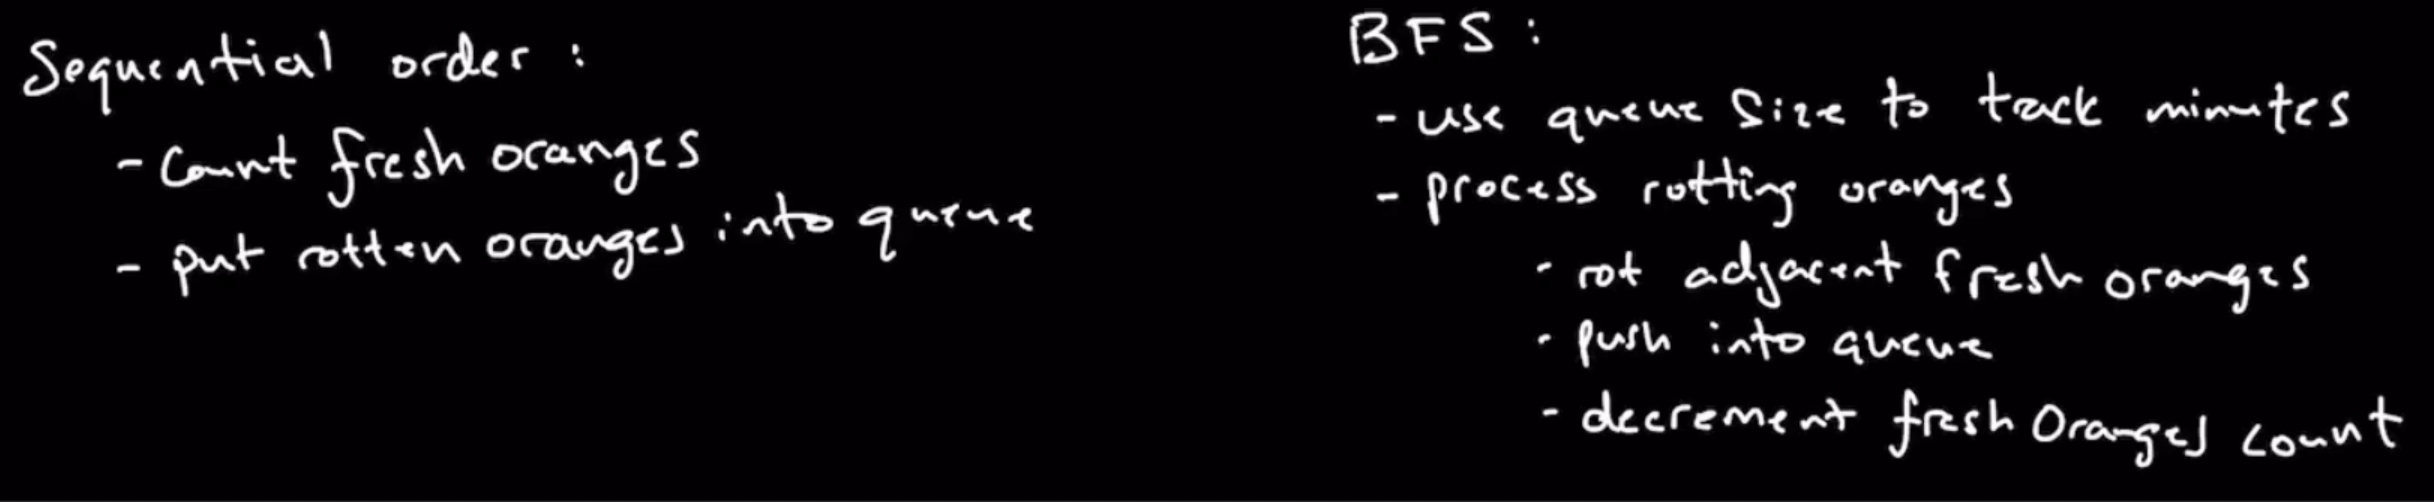 Sequential order :
- Count fresh oranges
- put rotten oranges into queue
BFS :
- use queue size to track minutes
- process rotting oranges
- rot adjacent fresh oranges
- push into queue
- decrement fresh oranges count